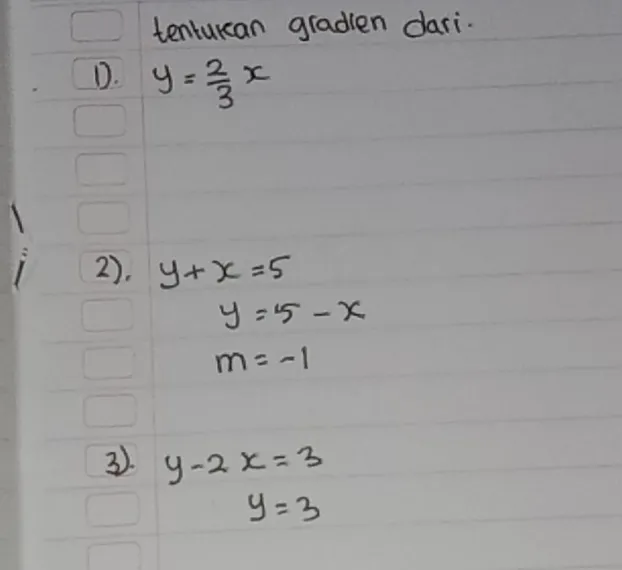 tentukan gradien dari.
1). y = 2/3 x
2). y + x = 5
y = 5 - x
m = -1
3). y - 2x = 3
y = 3